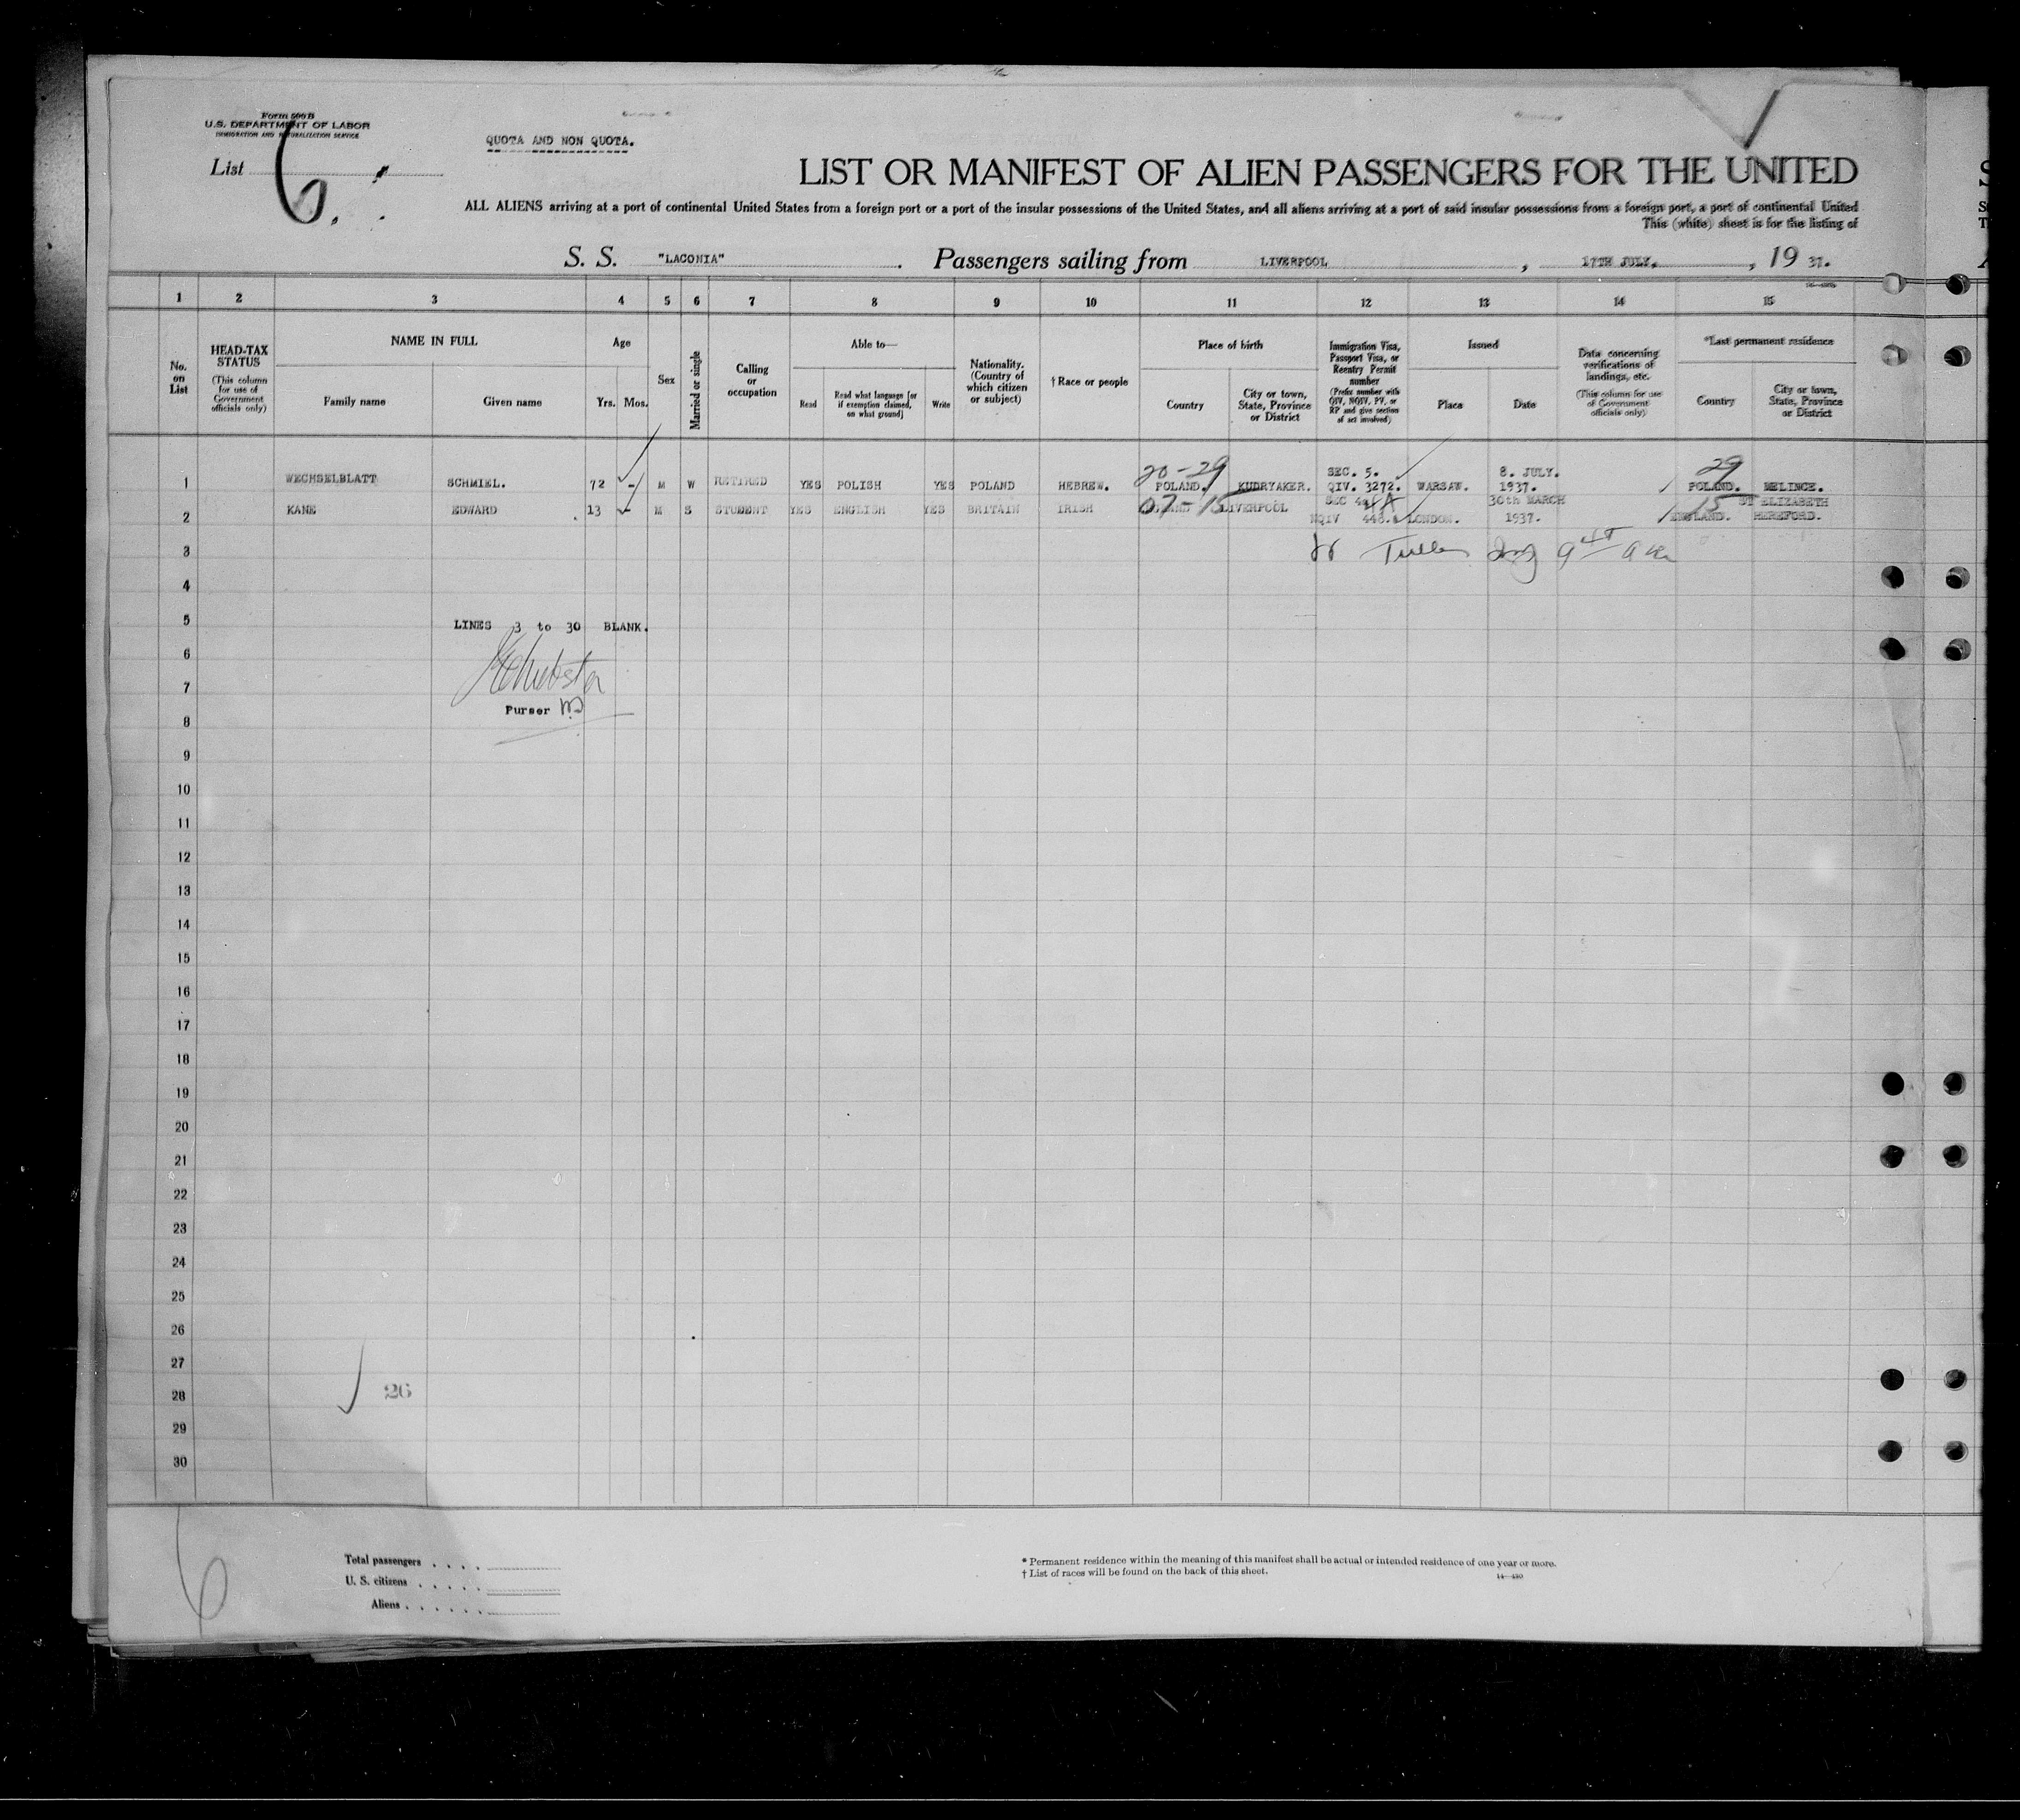 Form 500 B
U.S. DEPARTMENT OF LABOR
IMMIGRATION AND NATURALIZATION SERVICE
List 6.
QUOTA AND NON QUOTA.
LIST OR MANIFEST OF ALIEN PASSENGERS FOR THE UNITED
ALL ALIENS arriving at a port of continental United States from a foreign port or a port of the insular possessions of the United States, and all aliens arriving at a port of said insular possessions from a foreign port, a port of continental United
This (white) sheet is for the listing of
S. S. "LACONIA" . Passengers sailing from LIVERPOOL , 17TH JULY. , 19 37.
1 2 3 4 5 6 7 8 9 10 11 12 13 14 15
No. on List
HEAD-TAX STATUS (This column for use of Government officials only)
NAME IN FULL
Family name
Given name
Age
Yrs. Mos.
Sex
Married or single
Calling or occupation
Able to—
Read
Read what language [or if exemption claimed, on what ground]
Write
Nationality. (Country of which citizen or subject)
† Race or people
Place of birth
Country
City or town, State, Province or District
Immigration Visa, Passport Visa, or Reentry Permit number (Prefix number with QIV, NQIV, PV, or RP and give section of act involved)
Issued
Place
Date
Data concerning verifications of landings, etc. (This column for use of Government officials only)
*Last permanent residence
Country
City or town, State, Province or District
20-29 SEC. 5. 8. JULY. 29
1 WECHSELBLATT SCHMIEL. 72 - M W RETIRED YES POLISH YES POLAND HEBREW. POLAND. KUDRYAKER. QIV. 3272. WARSAW. 1937. POLAND. MELINCE.
07-15 SEC 4 30th MARCH 15 ST ELIZABETH
2 KANE EDWARD 13 - M S STUDENT YES ENGLISH YES BRITAIN IRISH LIVERPOOL NQIV 448. LONDON. 1937. ENGLAND. HEREFORD.
3
4
5 LINES 3 to 30 BLANK.
6
7
Purser
8
9
10
11
12
13
14
15
16
17
18
19
20
21
22
23
24
25
26
27
28 26
29
30
6
Total passengers . . . .
U. S. citizens . . . . .
Aliens . . . . . .
* Permanent residence within the meaning of this manifest shall be actual or intended residence of one year or more.
† List of races will be found on the back of this sheet.